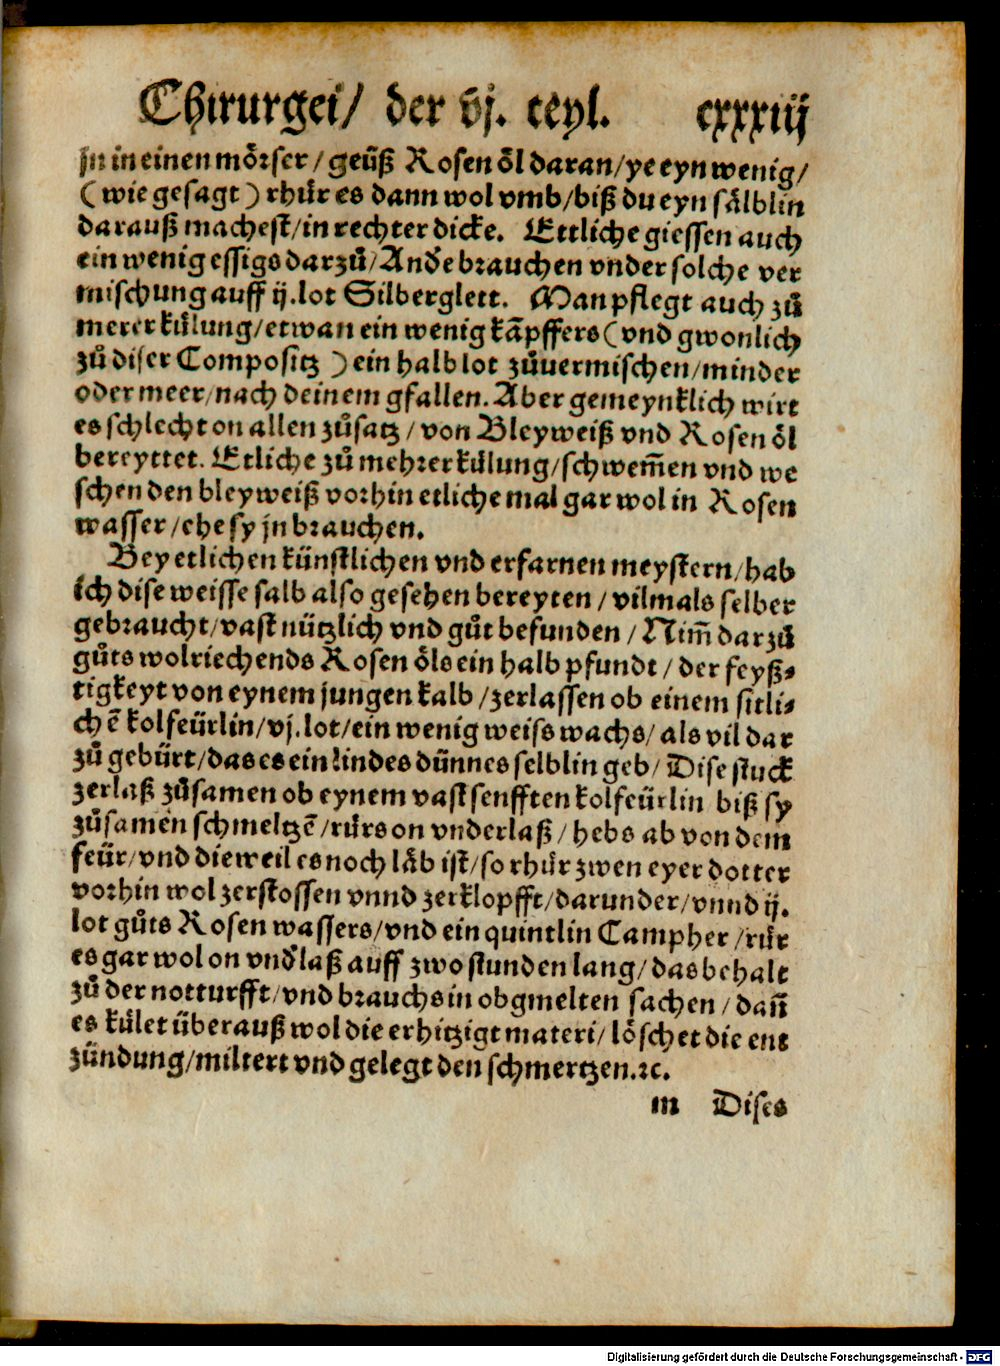 Chirurgei/ der vj. teyl. cxxxiij
jn in einen mörser/geüß Rosen öl daran/ye eyn wenig/
(wie gesagt) rhür es dann wol vmb/biß du eyn sälblin
darauß machest/in rechter dicke. Ettliche giessen auch
ein wenig essigs darzů/Andͤe brauchen vnder solche ver
mischung auff ij.lot Silberglett. Man pflegt auch zů
merer külung/etwan ein wenig kāpffers(vnd gwonlich
zů diser Compositz) ein halb lot zůuermischen/minder
oder meer/nach deinem gfallen. Aber gemeynklich wirt
es schlecht on allen zůsatz/von Bleyweiß vnd Rosen öl
bereyttet. Etliche zů mehrer külung/schwem̄en vnd we
schen den bleyweiß vorhin etliche mal gar wol in Rosen
wasser/ehe sy jn brauchen.
Bey etlichen künstlichen vnd erfarnen meystern/hab
ich dise weisse salb also gesehen bereyten/vilmals selber
gebraucht/vast nützlich vnd gůt befunden/Nim̄ darzů
gůts wolriechends Rosen öls ein halb pfundt/der feyß⸗
tigkeyt von eynem jungen kalb/zerlassen ob einem sitli⸗
chē kolfeürlin/vj.lot/ein wenig weiss wachs/als vil dar
zů gebürt/das es ein lindes dünnes selblin geb/Dise stuck
zerlaß zůsamen ob eynem vast senfften kolfeürlin biß sy
zůsamen schmeltzē/rürs on vnderlaß/hebs ab von dem
feür/vnd dieweil es noch läb ist/so rhür zwen eyer dotter
vorhin wol zerstossen vnnd zerklopfft/darunder/vnnd ij.
lot gůts Rosen wassers/vnd ein quintlin Campher/rür
es gar wol on vndͤlaß auff zwo stunden lang/das behalt
zů der notturfft/vnd brauchs in obgmelten sachen/dan̄
es kület überauß wol die erhitzigt materi/löschet die ent
zündung/miltert vnd gelegt den schmertzen.ꝛc.
m Dises
Digitalisierung gefördert durch die Deutsche Forschungsgemeinschaft - DFG